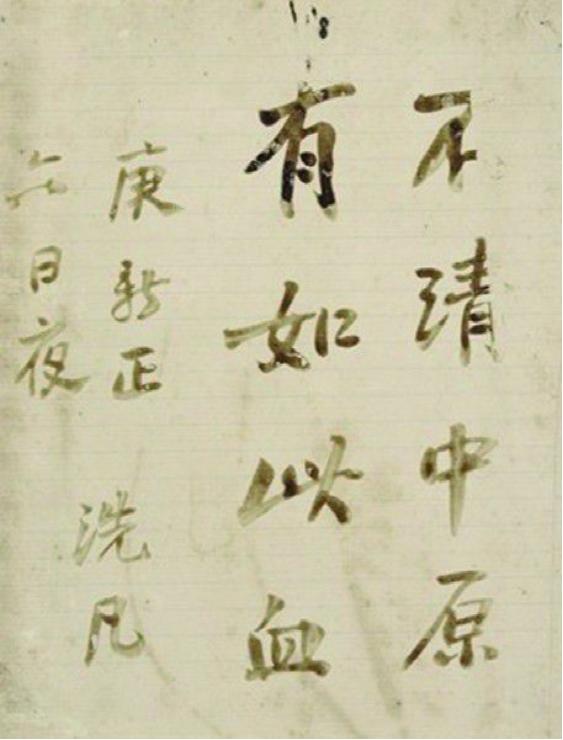 不靖中原
有如此血
庚新正
六日夜
洗凡